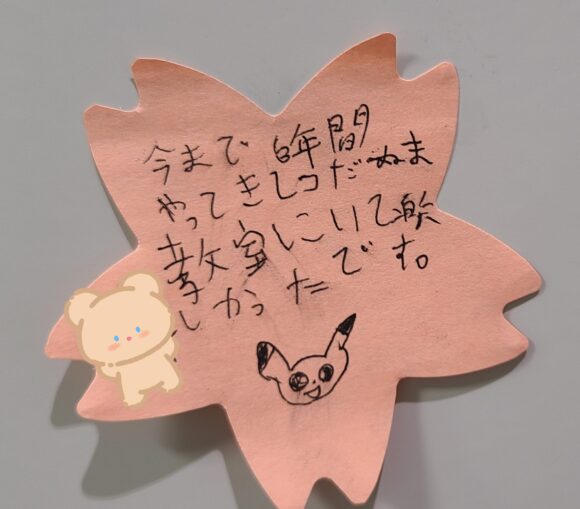 今まで6年間
やってきしつだぬま
教室にいて楽
しかったです。